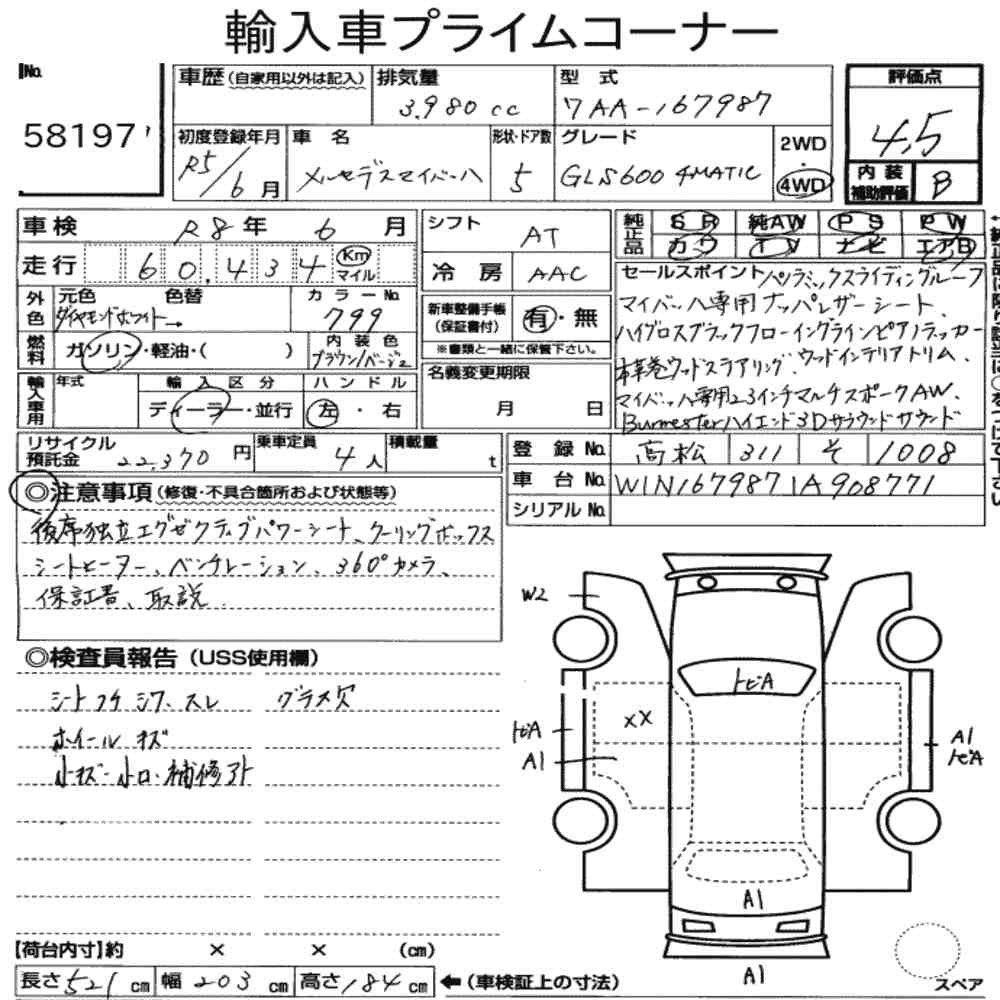 輸入車プライムコーナー
No.
58197
車歴(自家用以外は記入)
排気量
3,980cc
型式
7AA-167987
評価点
4.5
内装補助評価 B
初度登録年月
R5/6月
車名
メルセデスマイバッハ
形状・ドア数
5
グレード
GLS600 4MATIC
2WD・4WD
車検 R8年6月
走行 60,434 Km マイル
シフト AT
冷房 AAC
純正品 SR 純AW PS PW
カワ TV ナビ エアB
外色 元色 色替 カラーNo.
ダイヤモンドホワイト→ 799
燃料 ガソリン・軽油・( )
内装色
ブラウン/ベージュ
新車整備手帳(保証書付) 有・無
※書類と一緒に保管下さい。
名義変更期限
月 日
輸入車用 年式 輸入区分 ハンドル
ディーラー・並行 左・右
セールスポイント パノラミックスライディングルーフ
マイバッハ専用ナッパレザーシート、
ハイグロスブラックフローイングラインピアノラッカー
本革巻ウッドステアリング、ウッドインテリアトリム、
マイバッハ専用23インチマルチスポークAW、
Burmesterハイエンド3Dサラウンドサウンド
リサイクル預託金 22,370円
乗車定員 4人
積載量 t
登録No. 高松 311 そ 1008
車台No. W1N1679871A908771
シリアルNo.
◎注意事項(修復・不具合箇所および状態等)
後席独立エグゼクティブパワーシート、クーリングボックス
シートヒーター、ベンチレーション、360°カメラ、
保証書、取説
◎検査員報告(USS使用欄)
シートコゲ シワ、スレ グラス欠
ホイールキズ
小キズ・小凹・補修アト
W2
トビA
XX
トビA
A1
A1
トビA
A1
A1
【荷台内寸】約 × × (cm)
長さ521cm 幅203cm 高さ184cm ←(車検証上の寸法)
スペア